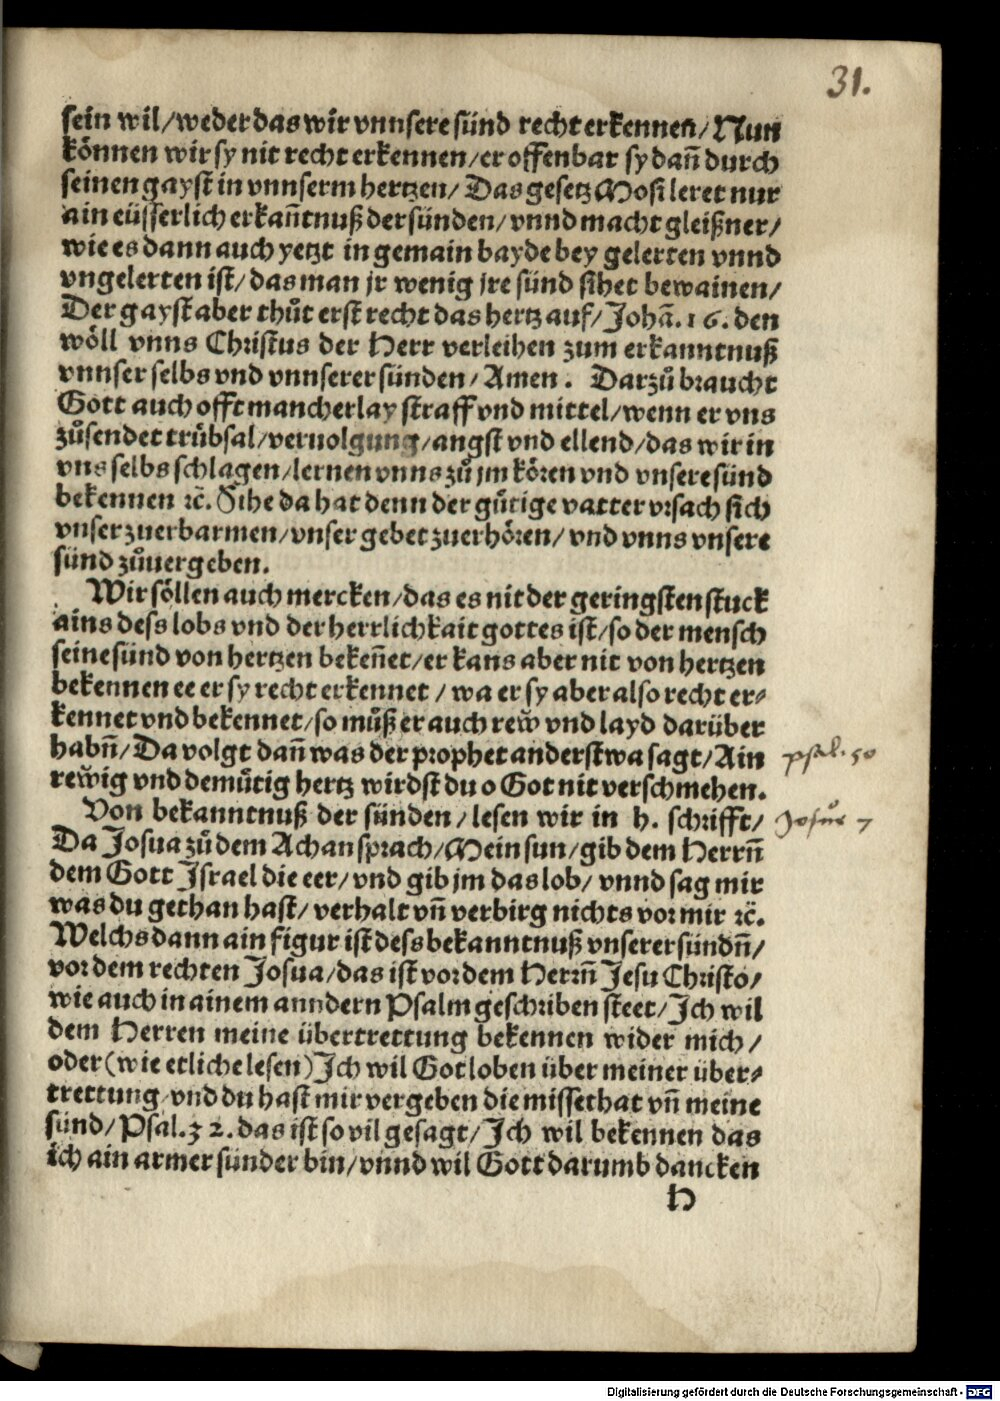 31.
sein wil/weder das wir vnnsere sünd recht erkennen/Nun
können wir sy nit recht erkennen/er offenbar sy dañ durch
seinen gayst in vnnserm hertzen/ Das gesetz Mosi leret nur
ain eüsserlich erkañtnuß der sünden/vnnd macht gleißner/
wie es dann auch yetzt in gemain bayde bey gelerten vnnd
vngelerten ist/das man jr wenig jre sünd sihet bewainen/
Der gayst aber thůt erst recht das hertz auf/Johã.16.den
wöll vnns Christus der Herr verleihen zum erkanntnuß
vnnser selbs vnd vnnserer sünden/Amen. Darzů braucht
Gott auch offt mancherlay straff vnd mittel/wenn er vns
zůsendet trübsal/veruolgung/angst vnd ellend/das wir in
vns selbs schlagen/lernen vnns zů jm kören vnd vnsere sünd
bekennen ꝛc̃. Sihe da hat denn der gütige vatter vrsach sich
vnser zuerbarmen/vnser gebet zuerhören/ vnd vnns vnsere
sünd zůuergeben.
Wir söllen auch mercken/das es nit der geringsten stuck
ains dess lobs vnd der herrlichkait gottes ist/so der mensch
seine sünd von hertzen bekeñet/er kans aber nit von hertzen
bekennen ee er sy recht erkennet/wa er sy aber also recht er⸗
kennet vnd bekennet/so můß er auch rew̌ vnd layd darüber
habñ/Da volgt dañ was der prophet anderstwa sagt/Ain
rew̌ig vnd demütig hertz wirdst du o Got nit verschmehen.
psal. 50
Von bekanntnuß der sünden/lesen wir in h. schrifft/
Josue 7
Da Josua zů dem Achan sprach/Mein sun/gib dem Herrñ
dem Gott Israel die eer/vnd gib jm das lob/ vnnd sag mir
was du gethan hast/verhalt vñ verbirg nichts vor mir ꝛc̃.
Welchs dann ain figur ist dess bekanntnuß vnserer sündñ/
vor dem rechten Josua/das ist vor dem Herrñ Jesu Christo/
wie auch in ainem anndern Psalm geschriben steet/Ich wil
dem Herren meine übertrettung bekennen wider mich/
oder (wie etliche lesen) Ich wil Got loben über meiner über⸗
trettung/vnd du hast mir vergeben die missethat vñ meine
sünd/Psal.32.das ist so vil gesagt/Ich wil bekennen das
ich ain armer sünder bin/vnnd wil Gott darumb dancken
H
Digitalisierung gefördert durch die Deutsche Forschungsgemeinschaft - DFG